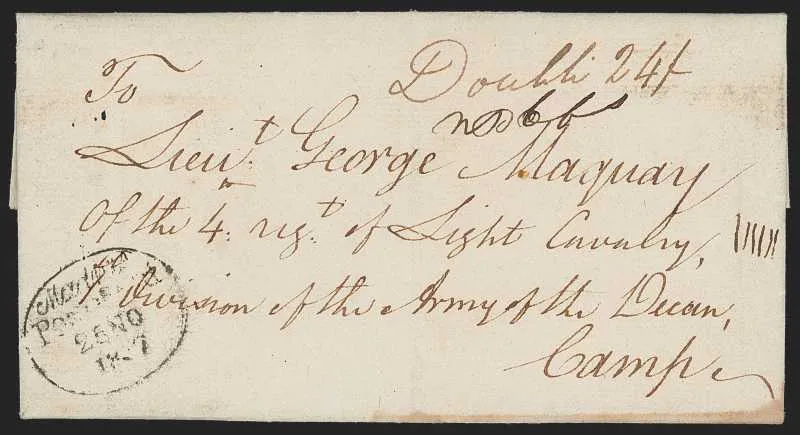 To
Double 24f
Lieut. George Maquay
Of the 4th. regt. of Light Cavalry,
division of the Army of the Decan,
Camp
Madras
28 NO